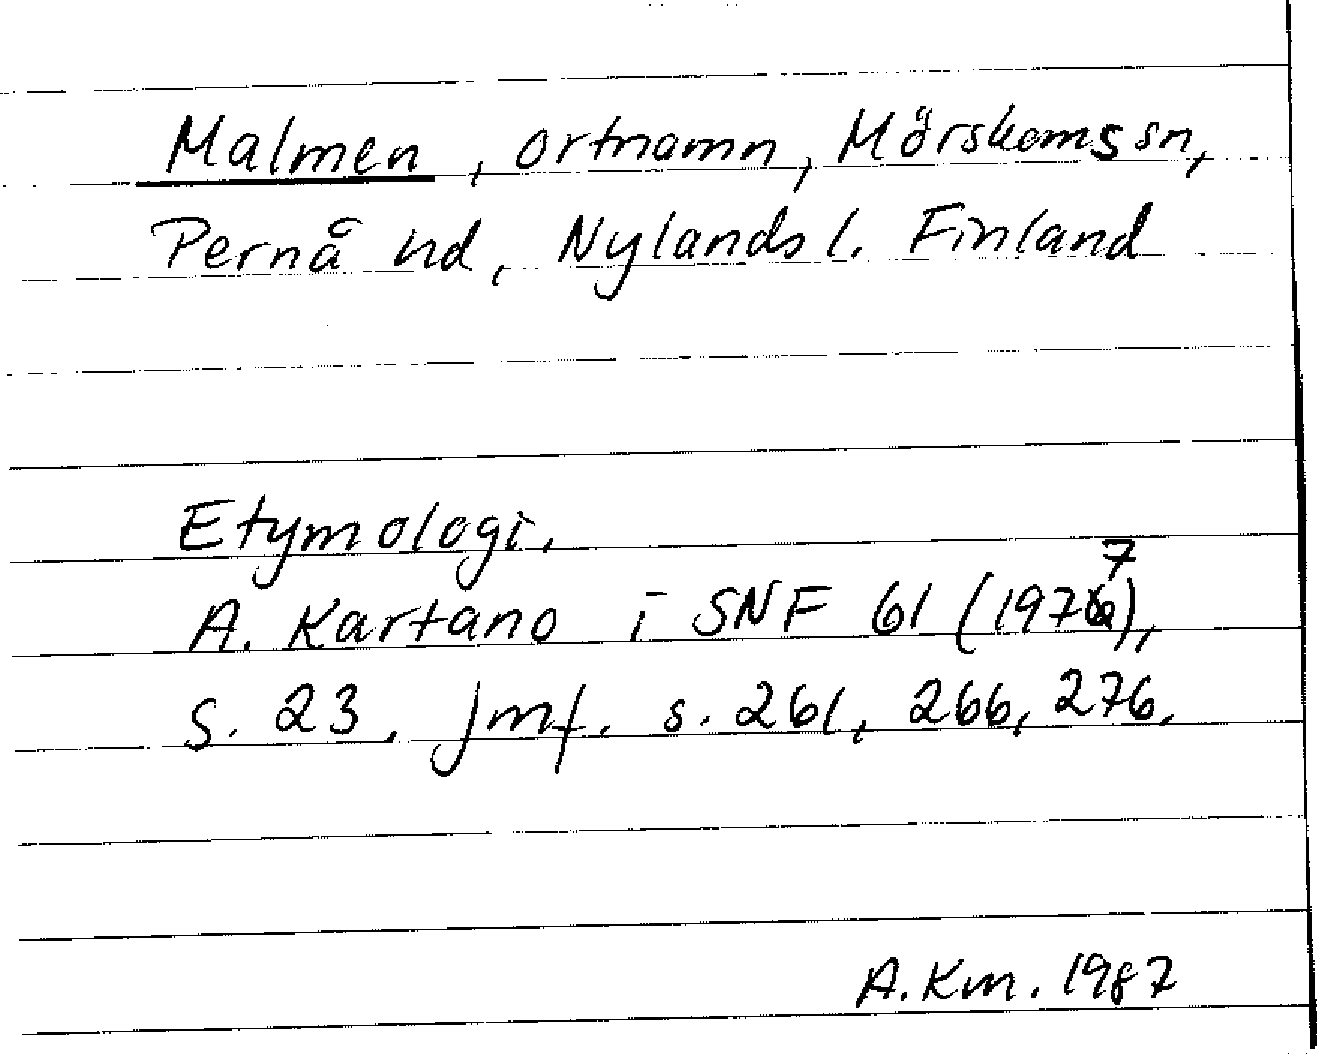 Malmen, ortnamn, Mörskoms sn,
Pernå hd, Nylands l. Finland
Etymologi.
A. Kartano i SNF 61 (1977),
s. 23, jmf. s. 261, 266, 276.
A.Km. 1987